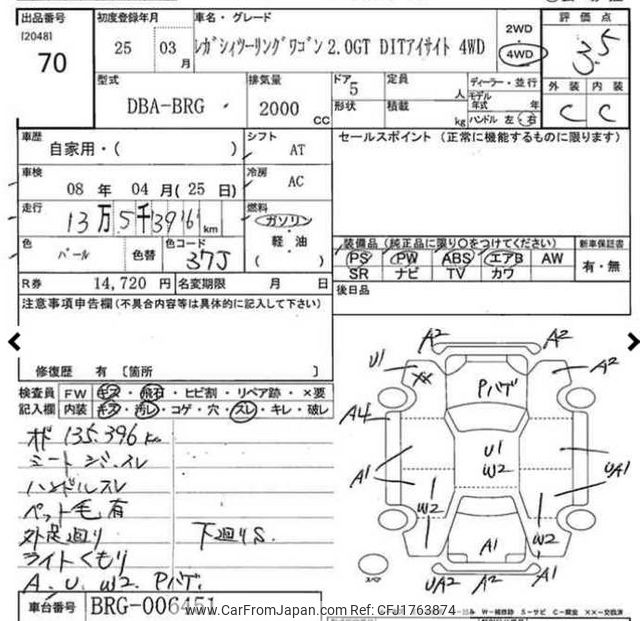 出品番号 初度登録年月 車名・グレード 2WD 評価点
[2048] 25 03 月 レガシィツーリングワゴン 2.0GT DITアイサイト 4WD 4WD 3.5
70
型式 排気量 ドア 定員 ディーラー・並行 外装 内装
DBA-BRG 2000 cc 5 人 モデル年式 年 C C
形状 積載 kg ハンドル 左・右
車歴 シフト セールスポイント (正常に機能するものに限ります)
自家用・( ) AT
車検 冷房
08 年 04 月(25 日) AC
走行 燃料
13万5千396 km ガソリン
軽・油
( )
色 色替 色コード 装備品(純正品に限り○をつけてください) 新車保証書
パール 37J PS PW ABS エアB AW 有・無
SR ナビ TV カワ
R券 14,720 円 名変期限 月 日 後日品
注意事項申告欄(不具合内容等は具体的に記入して下さい)
修復歴 有 〔箇所 〕
検査員 FW キズ・飛石・ヒビ割・リペア跡・×要
記入欄 内装 キズ・汚レ・コゲ・穴・スレ・キレ・破レ
オド 135,396 km
シートシワ・スレ
ハンドルスレ
ペット毛有
外足廻り 下廻りS.
ライトくもり
A. U. W2. Pハゲ.
車台番号 BRG-006451
A2 A2
U1 XX Pハゲ A2
A4
A1 U1 W2 UA1
W2 W2
A1
スペア UA2 A2 A1
W-補修跡 S-サビ C-腐食 XX-交換済
www.CarFromJapan.com Ref: CFJ1763874